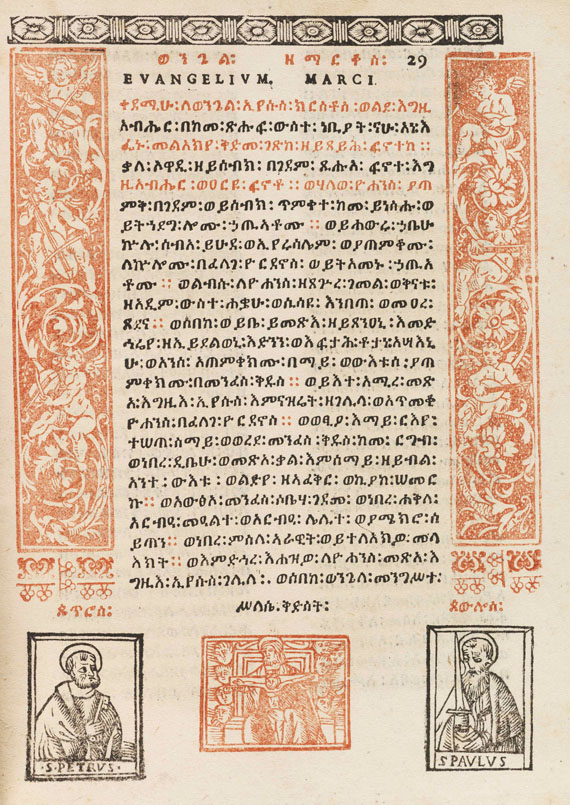 ወንጌል፡ ዘማርቆስ፡ 29
EVANGELIVM. MARCI
ቀዳሚሁ፡ ለወንጌል፡ ኢየሱስ፡ ክርስቶስ፡ ወልደ፡ እግዚ
አብሔር፡ በከመ፡ ጽሑፍ፡ ውስተ፡ ነቢያት፡ ናሁ፡ አነ፡ እ
ፌኑ፡ መልአክየ፡ ቅድመ፡ ገጽከ፡ ዘይጸይሕ፡ ፍኖተከ ።
ቃለ፡ ዐዋዲ፡ ዘይሰብክ፡ በገዳም፡ ጺሑ፡ ፍኖተ፡ እግ
ዚአብሔር፡ ወዐርዩ፡ ፍኖቶ ። ወሀለወ፡ ዮሐንስ፡ ያጠ
ምቅ፡ በገዳም፡ ወይሰብክ፡ ጥምቀተ፡ ከመ፡ ይነስሑ፡ ወ
ይትኀደግ፡ ሎሙ፡ ኃጢአቶሙ ። ወይሐውሩ፡ ኀቤሁ፡
ኵሉ፡ ሰብአ፡ ይሁዳ፡ ወኢየሩሳሌም፡ ወያጠምቆሙ፡
ለኵሎሙ፡ በፈለገ፡ ዮርዳኖስ፡ ወይትአመኑ፡ ኃጢአ
ቶሙ ። ወልብሱ፡ ለዮሐንስ፡ ዘጸጕረ፡ ገመል፡ ወቅናቱ፡
ዘአዲም፡ ውስተ፡ ሐቋሁ፡ ወሲሳዩ፡ አንበጣ፡ ወመዐረ፡
ጸደና ። ወሰበከ፡ ወይቤ፡ ይመጽእ፡ ዘይጸንዐኒ፡ እምድ
ኅሬየ፡ ዘኢይደልወኒ፡
ሁ፡ ወአንሰ፡ አጠምቀክሙ፡ በማይ፡ ወውእቱሰ፡ ያጠ
ምቀክሙ፡ በመንፈስ፡ ቅዱስ ። ወይእተ፡ አሚረ፡ መጽ
አ፡ እግዚእ፡ ኢየሱስ፡ እምናዝሬት፡ ዘገሊላ፡ ወአጥመቆ፡
ዮሐንስ፡ በፈለገ፡ ዮርዳኖስ ። ወወፂኦ፡ እማይ፡ ርእየ፡
ተሠጠ፡ ሰማይ፡ ወወረደ፡ መንፈስ፡ ቅዱስ፡ ከመ፡ ርግብ፡
ወነበረ፡ ዲቤሁ፡ ወመጽአ፡ ቃል፡ እምሰማይ፡ ዘይብል፡
አንተ፡ ውእቱ፡ ወልድየ፡ ዘአፈቅር፡ ወኪያከ፡ ሠመር
ኩ ። ወአውፅኦ፡ መንፈስ፡ ሶቤሃ፡ ገዳመ፡ ወነበረ፡ ሐቅለ፡
አርብዓ፡ መዓልተ፡ ወአርብዓ፡ ሌሊተ፡ ወያሜክሮ፡ ሰ
ይጣን ። ወነበረ፡ ምስለ፡ አራዊት፡ ወይትለአክዎ፡ መላ
እክት ። ወእምድኅረ፡ አኀዝዎ፡ ለዮሐንስ፡ መጽአ፡ እ
ግዚእ፡ ኢየሱስ፡ ገሊላ፡ ወሰበከ፡ ወንጌለ፡ መንግሥተ፡
ሥላሴ፡ ቅድስት፡
ጴጥሮስ፡ ጳውሎስ፡
S. PETRVS
S PAVLVS